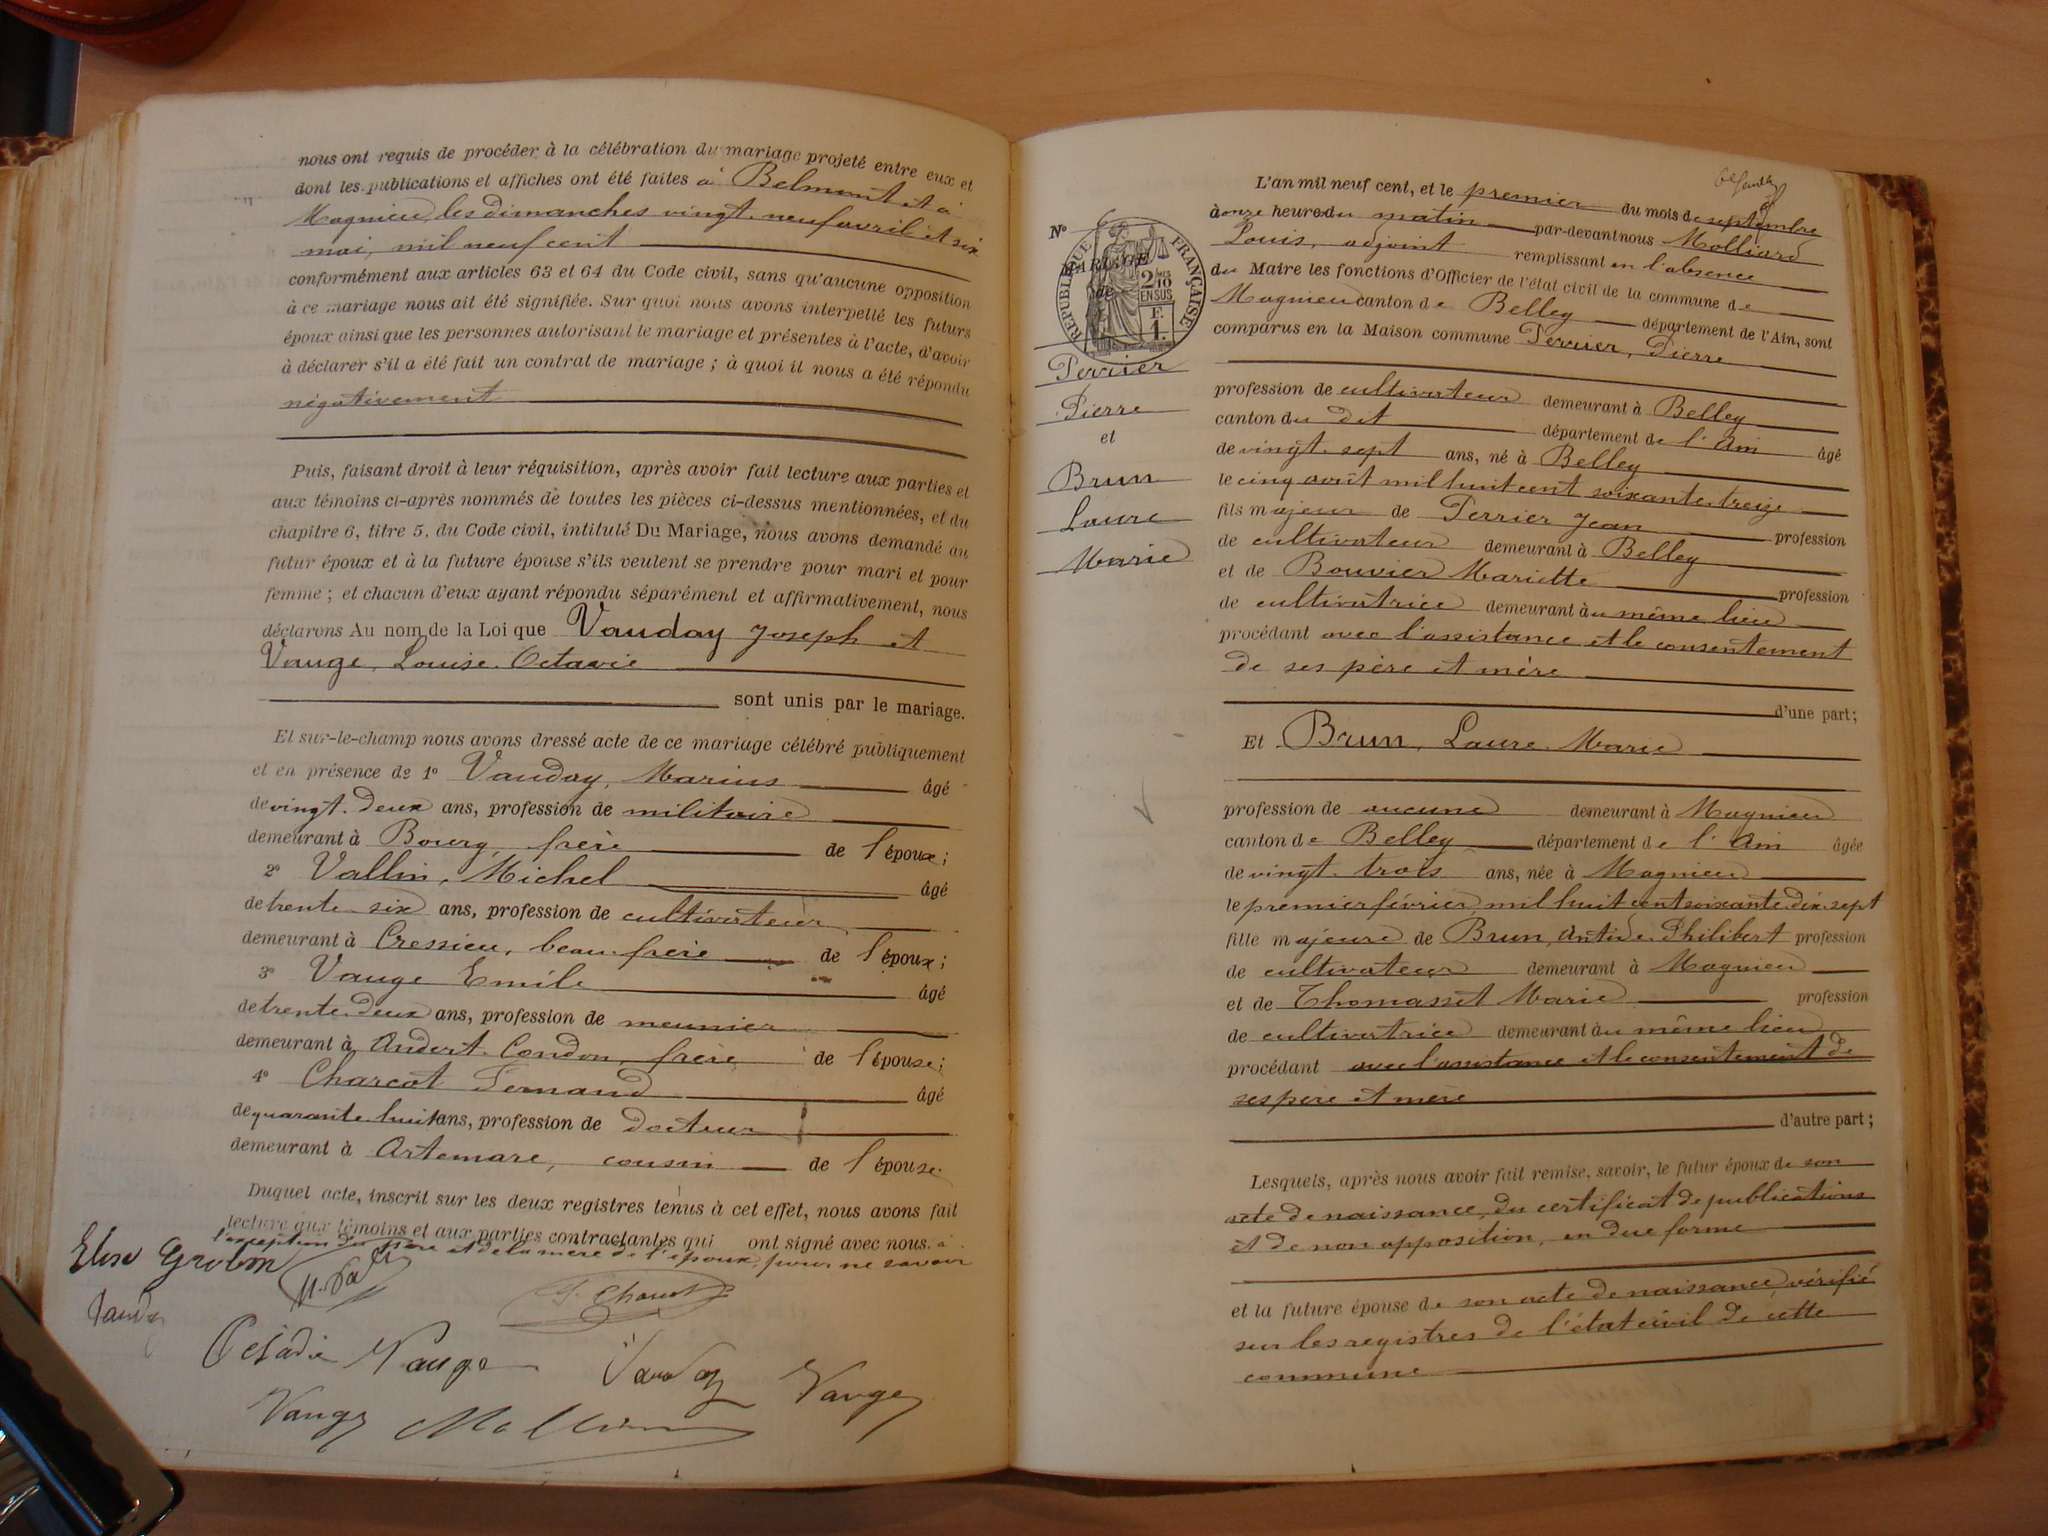 nous ont requis de procéder à la célébration du mariage projeté entre eux et
dont les publications et affiches ont été faites à Belmont et à
Magnieu les dimanches vingt-neuf avril et six
mai, mil neuf cent
conformément aux articles 63 et 64 du Code civil, sans qu'aucune opposition
à ce mariage nous ait été signifiée. Sur quoi nous avons interpellé les futurs
époux ainsi que les personnes autorisant le mariage et présentes à l'acte, d'avoir
à déclarer s'il a été fait un contrat de mariage ; à quoi il nous a été répondu
négativement
Puis, faisant droit à leur réquisition, après avoir fait lecture aux parties et
aux témoins ci-après nommés de toutes les pièces ci-dessus mentionnées, et du
chapitre 6, titre 5, du Code civil, intitulé Du Mariage, nous avons demandé au
futur époux et à la future épouse s'ils veulent se prendre pour mari et pour
femme ; et chacun d'eux ayant répondu séparément et affirmativement, nous
déclarons Au nom de la Loi que Vauday Joseph et
Vauge, Louise Octavie
sont unis par le mariage.
Et sur-le-champ nous avons dressé acte de ce mariage célébré publiquement
et en présence de 1º Vauday, Marius âgé
de vingt-deux ans, profession de militaire
demeurant à Bourg, frère de l'époux ;
2º Vallin, Michel âgé
de trente six ans, profession de cultivateur
demeurant à Cressieu, beau-frère de l'époux ;
3º Vauge Emile âgé
de trente-deux ans, profession de meunier
demeurant à Andert-Condon, frère de l'épouse ;
4º Charcot Fernand âgé
de quarante-huit ans, profession de docteur
demeurant à Artemare, cousin de l'épouse.
Duquel acte, inscrit sur les deux registres tenus à cet effet, nous avons fait
lecture aux témoins et aux parties contractantes qui ont signé avec nous. à
l'exception du père et de la mère de l'époux, pour ne savoir
Elise
F. Charcot
Vauday
Octavie Vauge
Vauday
Vauge
Vauge
Molliard
Nº 6
RÉPUBLIQUE FRANÇAISE
MARIAGE
de
2/10 EN SUS
F. 1.
Perrier
Pierre
et
Brun
Laure
Marie
L'an mil neuf cent, et le premier du mois de septembre
à onze heures du matin par-devant nous Molliard
Louis, adjoint remplissant en l'absence
du Maire les fonctions d'Officier de l'état civil de la commune de
Magnieu canton de Belley département de l'Ain, sont
comparus en la Maison commune Perrier, Pierre
profession de cultivateur demeurant à Belley
canton du dit département de l'Ain âgé
de vingt-sept ans, né à Belley
le cinq août mil huit cent soixante-treize
fils majeur de Perrier Jean profession
de cultivateur demeurant à Belley
et de Bouvier Mariette profession
de cultivatrice demeurant au même lieu
procédant avec l'assistance et le consentement
de ses père et mère
d'une part ;
Et Brun, Laure Marie
profession de aucune demeurant à Magnieu
canton de Belley département de l'Ain âgée
de vingt-trois ans, née à Magnieu
le premier février mil huit cent soixante-dix-sept
fille majeure de Brun, Antide Philibert profession
de cultivateur demeurant à Magnieu
et de Thomasset Marie profession
de cultivatrice demeurant au même lieu
procédant avec l'assistance et le consentement de
ses père et mère
d'autre part ;
Lesquels, après nous avoir fait remise, savoir, le futur époux de son
acte de naissance, du certificat de publications
et de non opposition, en due forme
et la future épouse de son acte de naissance, vérifié
sur les registres de l'état civil de cette
commune